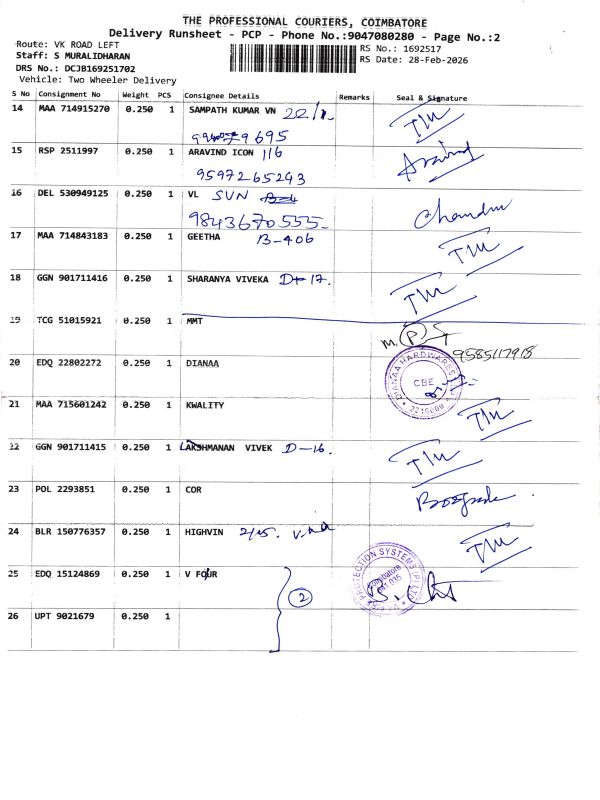 THE PROFESSIONAL COURIERS, COIMBATORE
Delivery Runsheet - PCP - Phone No.:9047080280 - Page No.:2
Route: VK ROAD LEFT
RS No.: 1692517
Staff: S MURALIDHARAN
RS Date: 28-Feb-2026
DRS No.: DCJB169251702
Vehicle: Two Wheeler Delivery
S No Consignment No Weight PCS Consignee Details Remarks Seal & Signature
14 MAA 714915270 0.250 1 SAMPATH KUMAR VN
9695
15 RSP 2511997 0.250 1 ARAVIND ICON 116 Aravind
9597265243
16 DEL 530949125 0.250 1 VL SUN
9843670555
17 MAA 714843183 0.250 1 GEETHA B-406
18 GGN 901711416 0.250 1 SHARANYA VIVEKA D-17.
19 TCG 51015921 0.250 1 MMT
9585117918
20 EDQ 22802272 0.250 1 DIANAA DIANAA HARDWARES CBE
21 MAA 715601242 0.250 1 KWALITY
22 GGN 901711415 0.250 1 LAKSHMANAN VIVEK D-16.
23 POL 2293851 0.250 1 COR
24 BLR 150776357 0.250 1 HIGHVIN
25 EDQ 15124869 0.250 1 V FOUR FIRE PROTECTION SYSTEMS (P) LTD Coimbatore
2
26 UPT 9021679 0.250 1